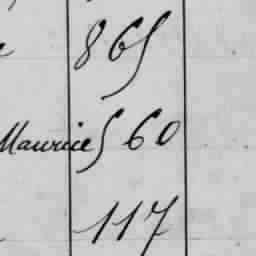 865
Maurice 560
117